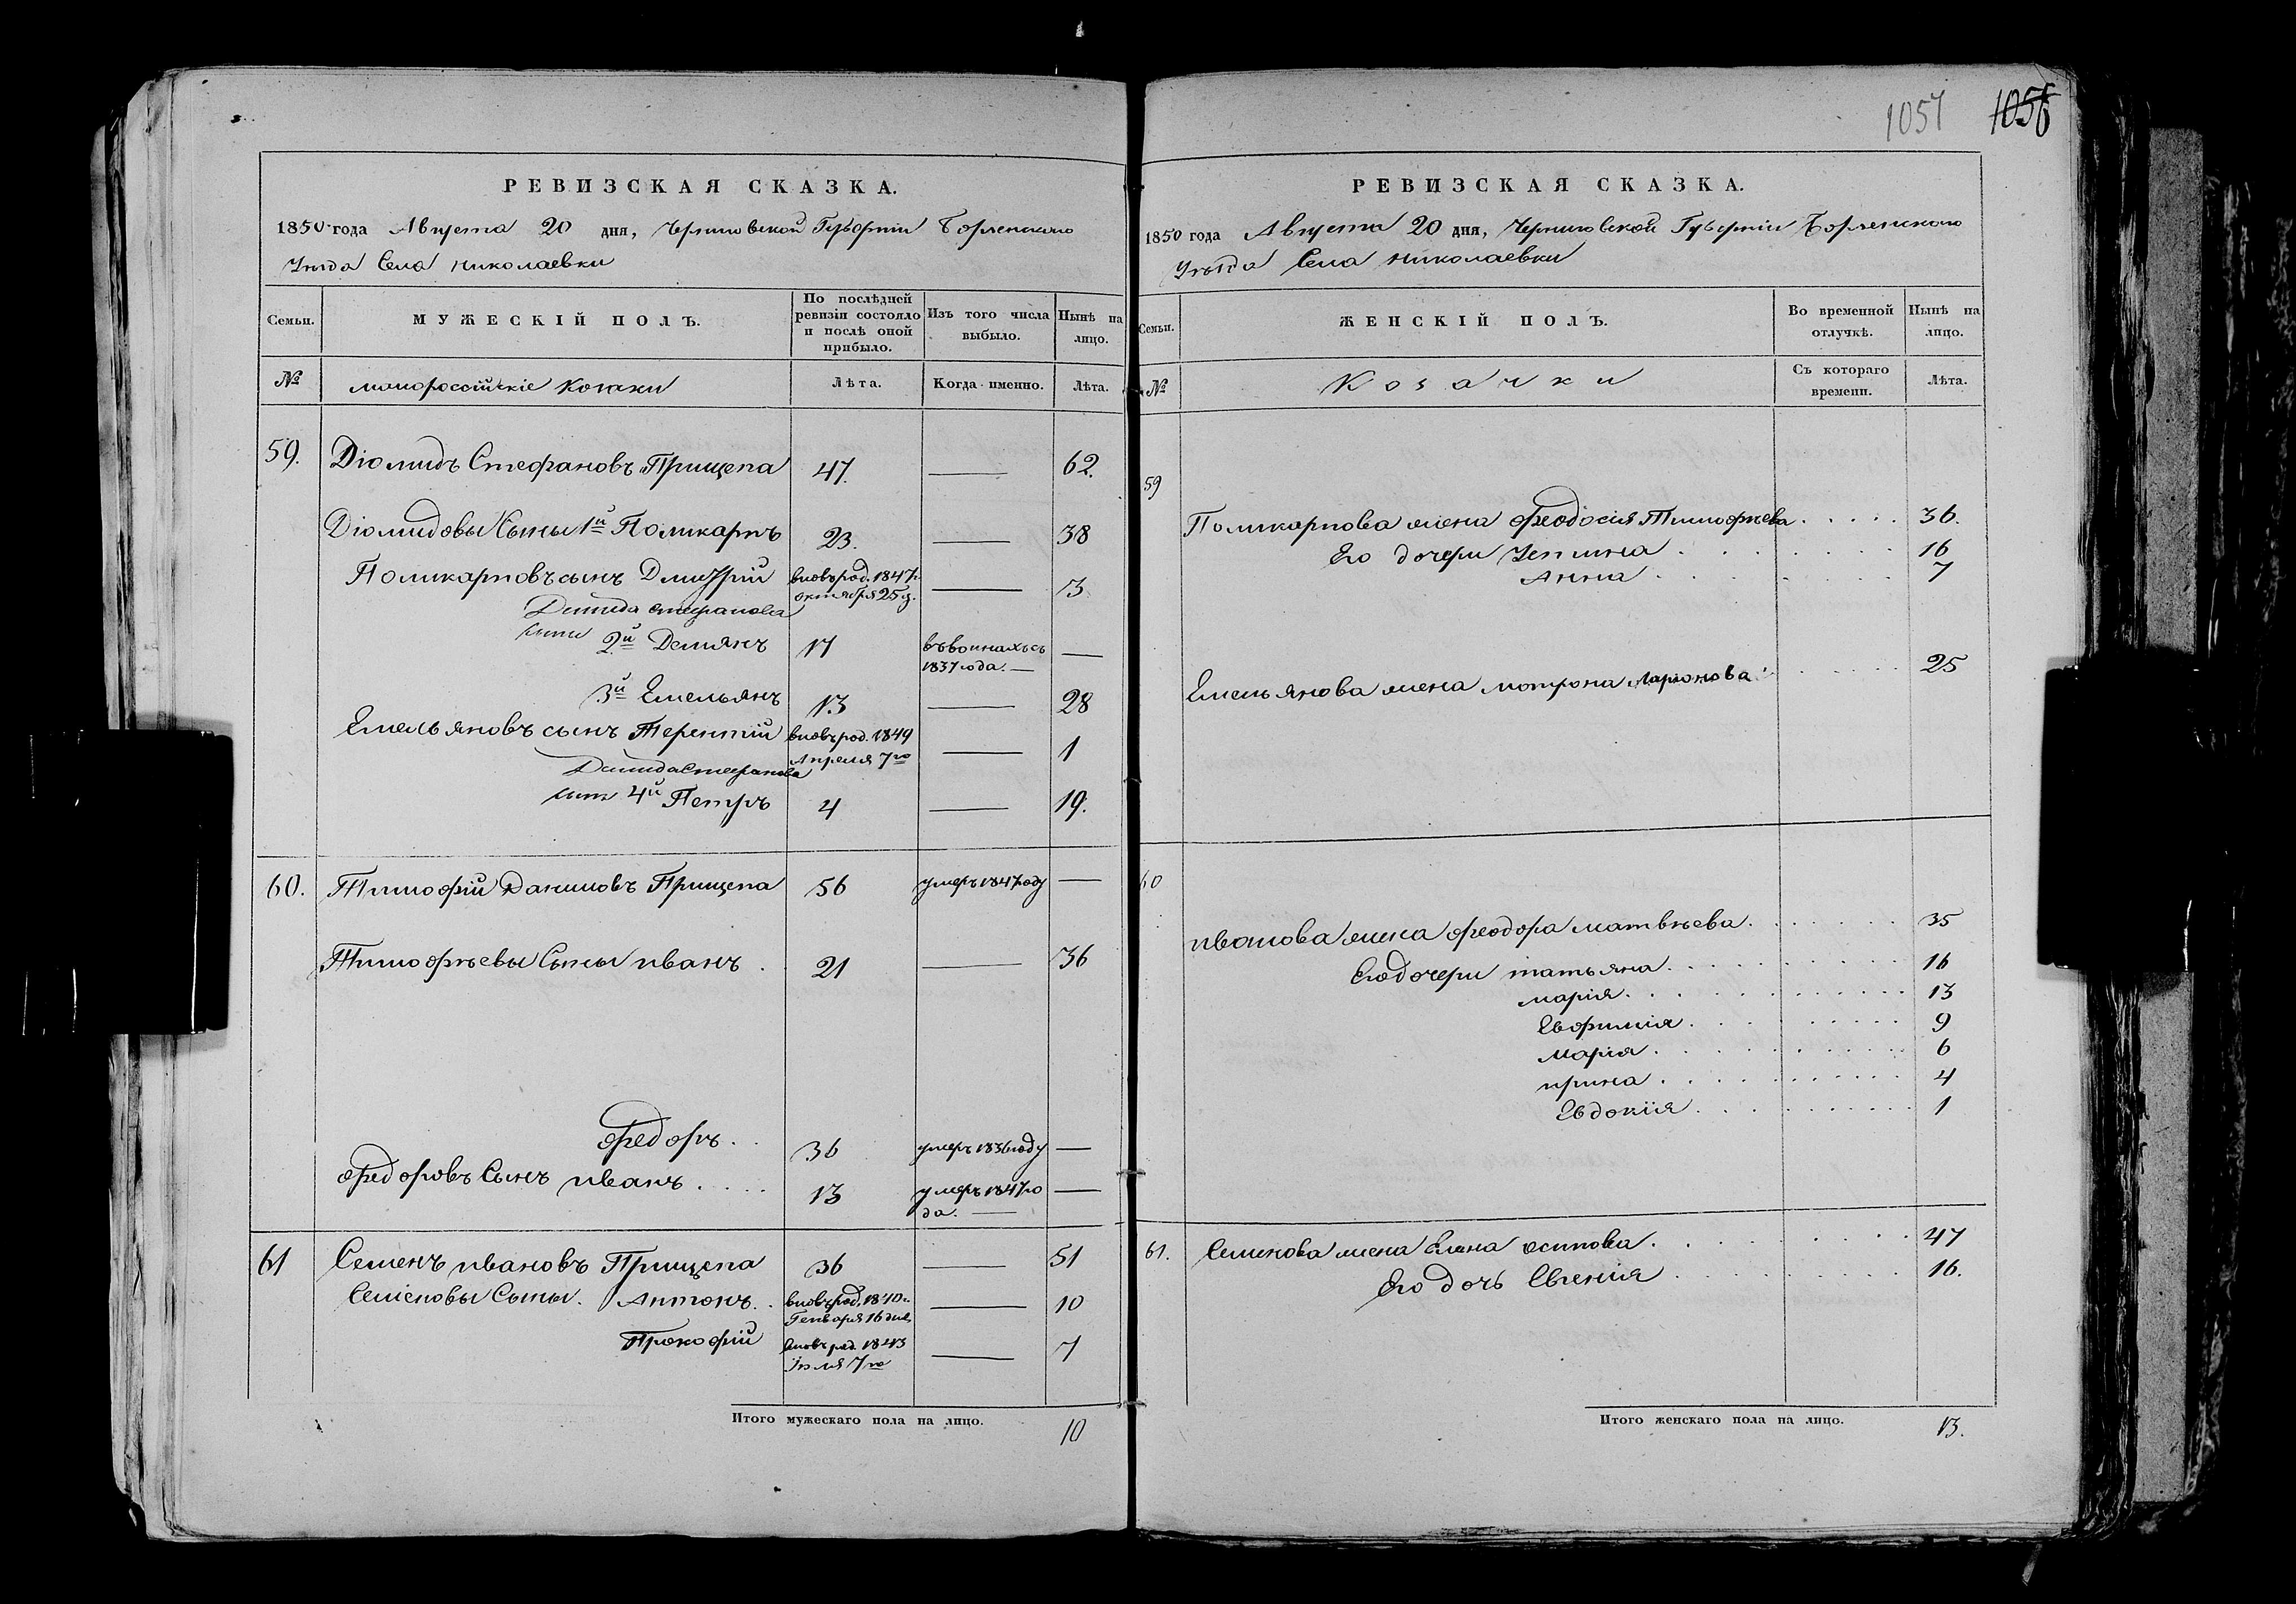 РЕВИЗСКАЯ СКАЗКА.
1850 года Августа 20 дня, Черниговской Губерніи Борзенскаго
Уѣзда Села Николаевки
Семьи.
МУЖЕСКІЙ ПОЛЪ.
По послѣдней ревизіи состояло и послѣ оной прибыло.
Изъ того числа выбыло.
Нынѣ на лицо.
№
малороссійскіе козаки
Лѣта.
Когда именно.
Лѣта.
59. Діомидъ Стефановъ Прищепа 47. — 62.
Діомидовы Сыны 1й Поликарпъ 23. — 38
Поликарповъ сынъ Дмитрій вновь род. 1847 г. октября 25 д. — 3
Демида Стефанова
сынъ 2й Демянъ 17 въ воинахъ съ 1837 года. — —
3й Емельянъ 13 — 28
Емельяновъ сынъ Терентій вновь род. 1849 Апреля 7го — 1
Демида Стефанова
сынъ 4й Петръ 4 — 19.
60. Тимофій Даниловъ Прищепа 56 умеръ 1847 году —
Тимофѣевы Сыны иванъ . 21 — 36
Федоръ . . 36 умеръ 1836 году —
Федоровъ Сынъ иванъ . . . . 13 умеръ 1847 го
да. — —
61 Семенъ ивановъ Прищепа 36 — 51
Семеновы Сыны. Антонъ . . вновь род. 1840 г. Генваря 16 дня — 10
Прокофій вновь род. 1843 Іюля 7го — 7
Итого мужескаго пола на лицо. 10
1057 1056
РЕВИЗСКАЯ СКАЗКА.
1850 года Августа 20 дня, Черниговской Губерніи Борзенскаго
Уѣзда Села Николаевки
Семьи.
ЖЕНСКІЙ ПОЛЪ.
Во временной отлучкѣ.
Нынѣ на лицо.
№
Козачки
Съ котораго времени.
Лѣта.
59
Поликарпова жена Феодосія Тимофѣева . . . . . 36.
Его дочери Устина . . . . . 16
Анна . . . . . 7
Емельянова жена мотрона Ларіонова . . . . . 25
60
иванова жена феодора матвѣева . . . . . 35
Его дочери татьяна . . . . . 16
марія . . . . . 13
Евфимія . . . . . 9
марія . . . . . 6
ирина . . . . . 4
Евдокія . . . . . 1
61. Семенова жена Елена осипова . . . . . 47
Его дочь Евгенія . . . . . 16.
Итого женскаго пола на лицо. 13.